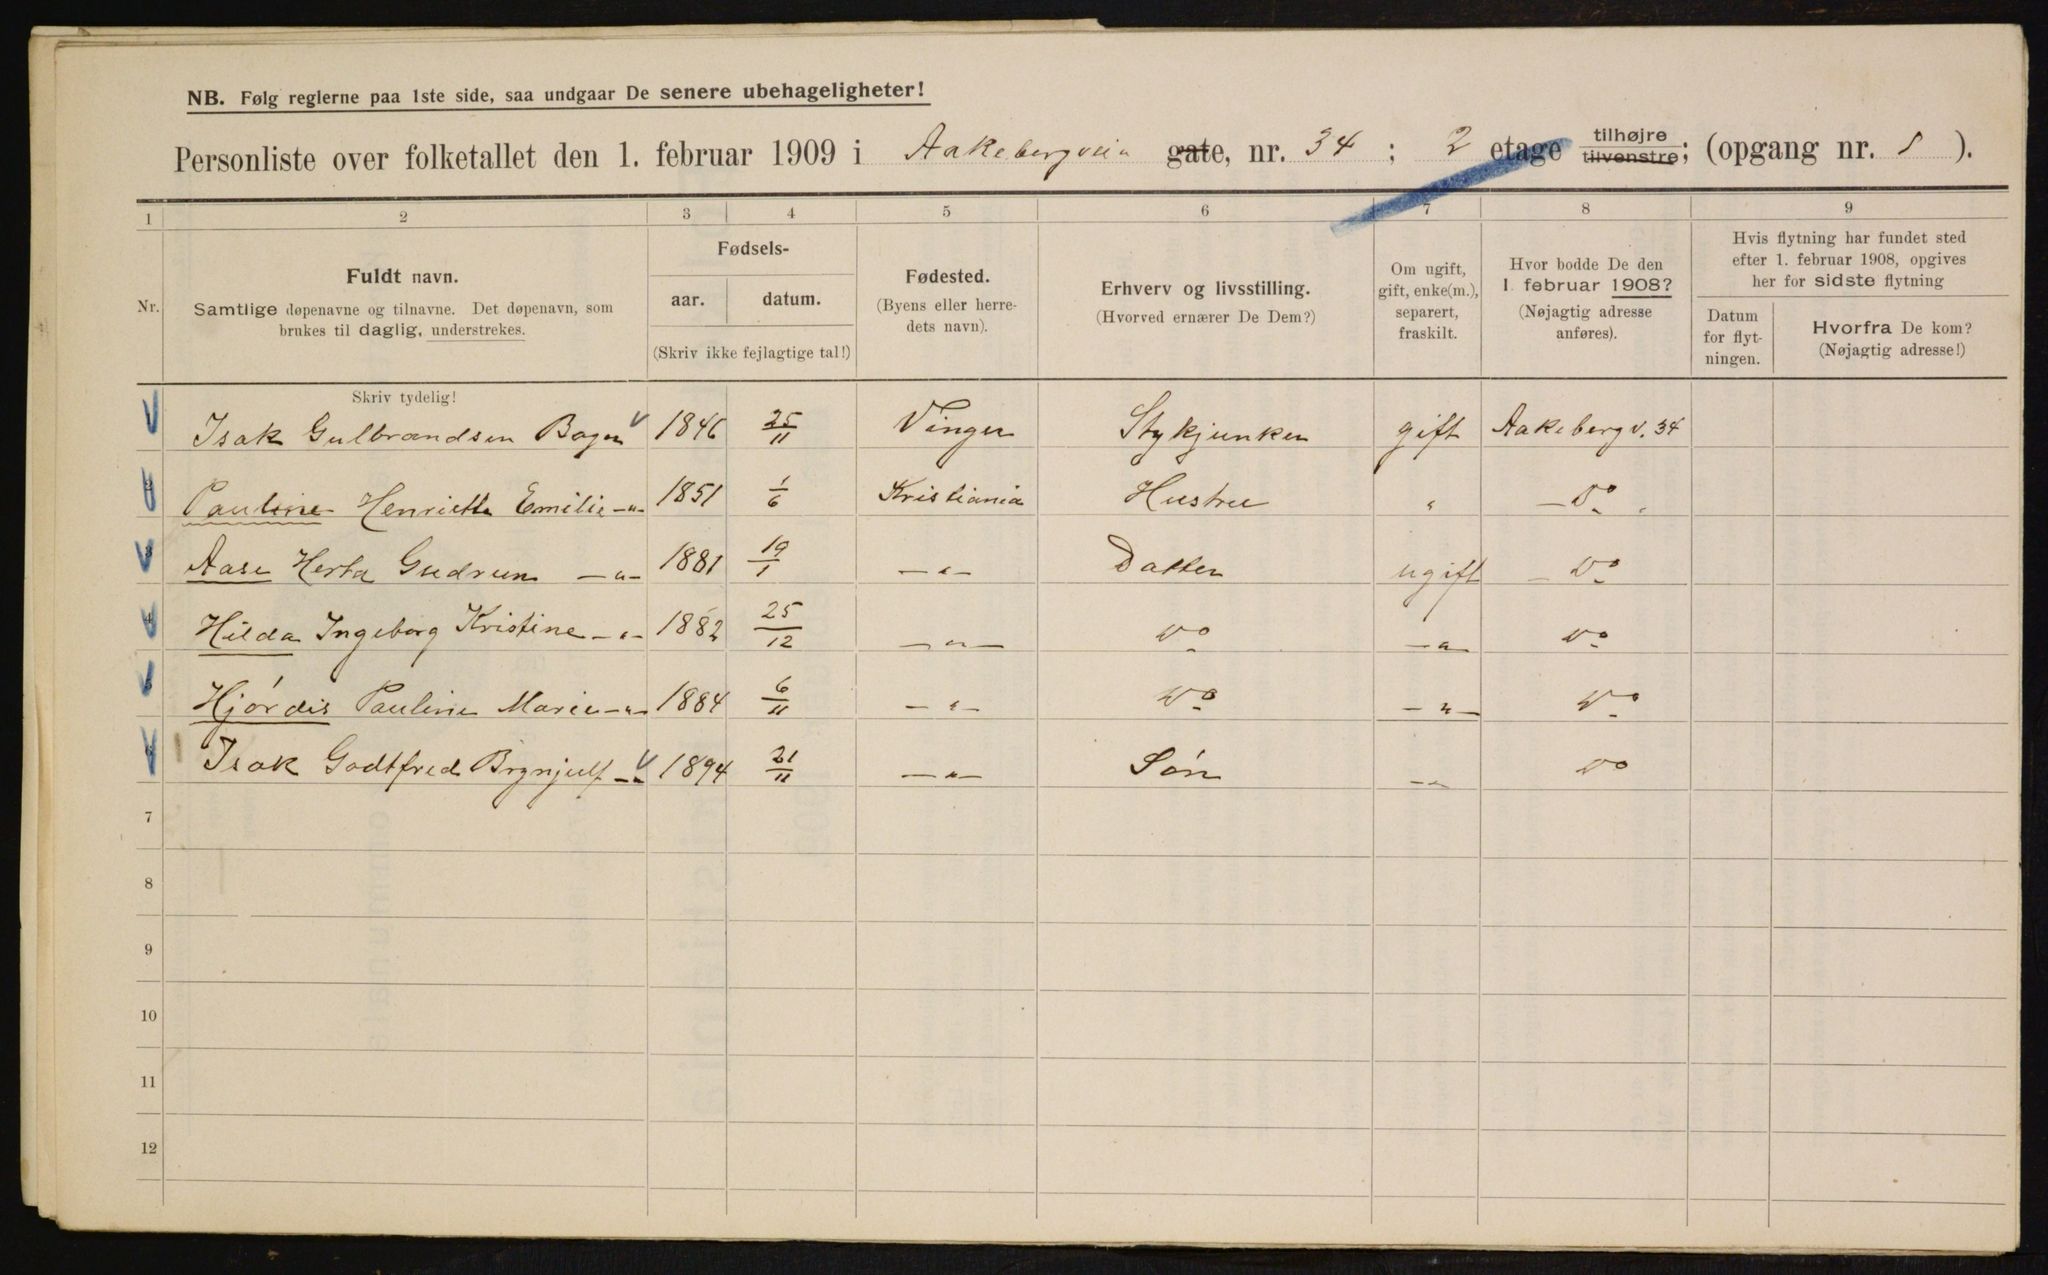 NB. Følg reglerne paa 1ste side, saa undgaar De senere ubehageligheter!
Personliste over folketallet den 1. februar 1909 i Aakebergveien gate, nr. 34 ; 2 etage tilhøjre tilvenstre; (opgang nr. ).
1 2 3 4 5 6 7 8 9
Nr.
Fuldt navn.
Samtlige døpenavne og tilnavne. Det døpenavn, som
brukes til daglig, understrekes.
Fødsels-
aar. datum.
(Skriv ikke fejlagtige tal!)
Fødested.
(Byens eller herre-
dets navn).
Erhverv og livsstilling.
(Hvorved ernærer De Dem?)
Om ugift,
gift, enke(m.),
separert,
fraskilt.
Hvor bodde De den
1. februar 1908?
(Nøjagtig adresse
anføres).
Hvis flytning har fundet sted
efter 1. februar 1908, opgives
her for sidste flytning
Datum
for flyt-
ningen.
Hvorfra De kom?
(Nøjagtig adresse!)
Skriv tydelig!
Isak Gulbrandsen Bogen 1846 25/11 Vinger Stykjunker gift Aakebergv. 34
2 Pauline Henriette Emilie -"- 1851 1/6 Kristiania Hustru " - Do
3 Aase Herta Gudrun -"- 1881 19/1 -"- Datter ugift - Do
4 Hilda Ingeborg Kristine -"- 1882 25/12 -"- Do -"- Do
5 Hjørdis Pauline Marie -"- 1884 6/11 -"- Do -"- Do
6 Isak Godtfred Brynjulf -"- 1894 21/11 -"- Søn -"- Do
7
8
9
10
11
12